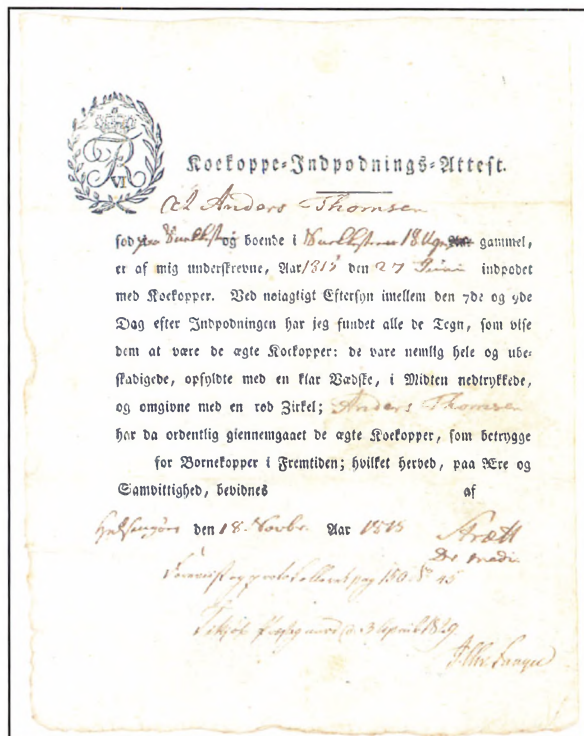 FR VI
Koekoppe-Indpodnings-Attest.
At Anders Thomsen
fød og boende i 18 Uger gammel,
er af mig underskrevne, Aar 1815 den 27 Juni indpodet
med Koekopper. Ved nøiagtigt Eftersyn imellem den 7de og 9de
Dag efter Indpodningen har jeg fundet alle de Tegn, som vise
dem at være de ægte Koekopper: de vare nemlig hele og ube-
skadigede, opfyldte med en klar Vædske, i Midten nedtrykkede,
og omgivne med en rød Zirkel; Anders Thomsen
har da ordentlig giennemgaaet de ægte Koekopper, som betrygge
for Børnekopper i Fremtiden; hvilket herved, paa Ære og
Samvittighed, bevidnes af
den 18. Novbr. Aar
Dr medic
Foreviist og protocolleret pag 150
Tikjøb Præstegaard d. 3 April 1829